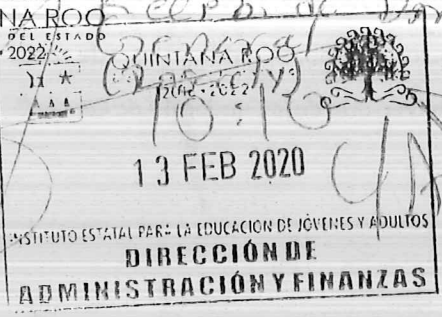 NA ROO
DEL ESTADO
2022
QUINTANA ROO
2016-2022
10:10
13 FEB 2020
INSTITUTO ESTATAL PARA LA EDUCACIÓN DE JÓVENES Y ADULTOS
DIRECCIÓN DE
ADMINISTRACIÓN Y FINANZAS